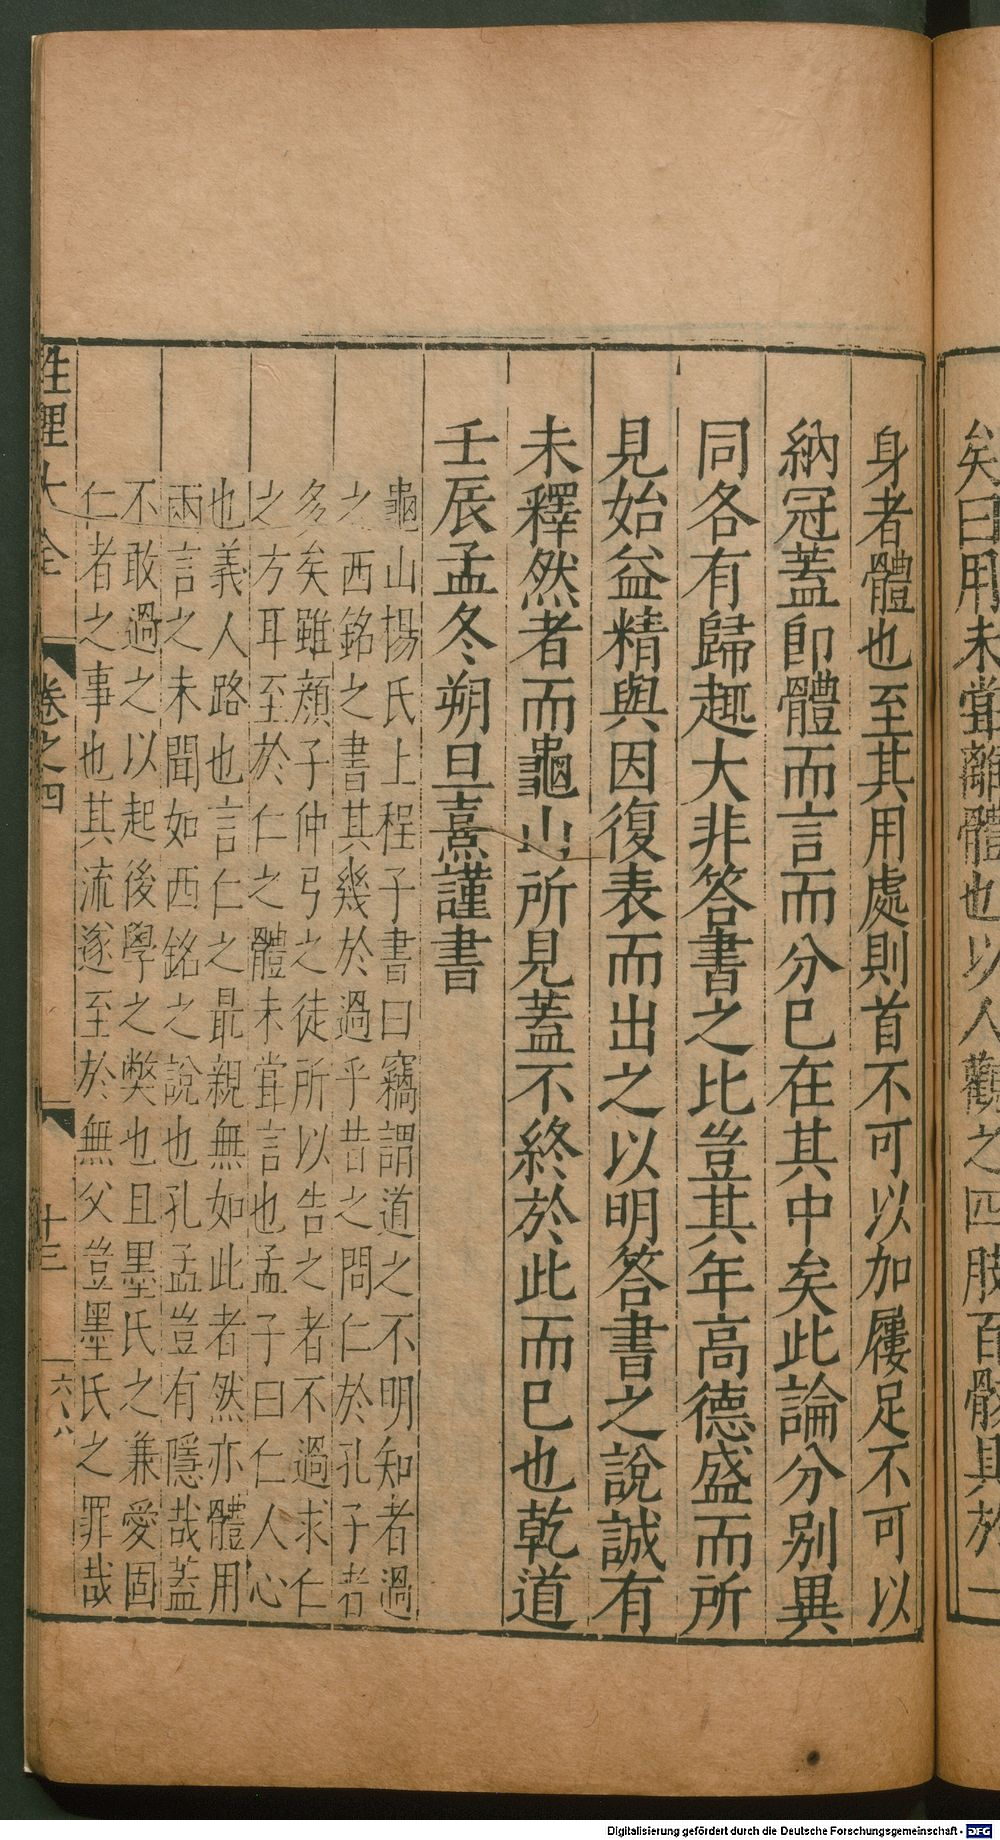 矣曰用未甞離體也以人觀之四肢百骸具於一
身者體也至其用處則首不可以加屨足不可以
納冠蓋即體而言而分已在其中矣此論分别異
同各有歸趣大非答書之比豈其年高德盛而所
見始益精與因復表而出之以明答書之說誠有
未釋然者而龜山所見蓋不終於此而已也乾道
壬辰孟冬朔旦熹謹書
龜山楊氏上程子書曰竊謂道之不明知者過
之西銘之書其幾於過乎昔之問仁於孔子者
多矣雖顔子仲弓之徒所以告之者不過求仁
之方耳至於仁之體未甞言也孟子曰仁人心
也義人路也言仁之最親無如此者然亦體用
兩言之未聞如西銘之說也孔孟豈有隱哉蓋
不敢過之以起後學之弊也且墨氏之兼愛固
仁者之事也其流遂至於無父豈墨氏之罪哉
性理大全 卷之四 十三 六八
Digitalisierung gefördert durch die Deutsche Forschungsgemeinschaft - DFG